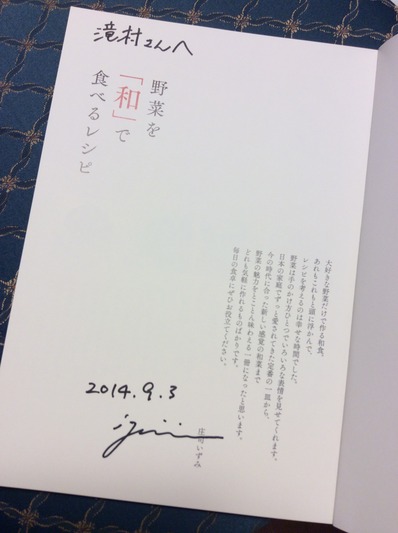 滝村さんへ
野菜を
「和」で
食べるレシピ
大好きな野菜だけで作る和食。
あれもこれもと頭に浮かんで、
レシピを考えるのは幸せな時間でした。
野菜は手のかけ方ひとつでいろいろな表情を見せてくれます。
日本の家庭でずっと愛されてきた定番の一皿から、
今の時代に合った新しい感覚の和菜まで
野菜の魅力をとことん味わえる一冊になったと思います。
どれも気軽に作れるものばかりです。
毎日の食卓にぜひお役立てください。
庄司いずみ
2014.9.3